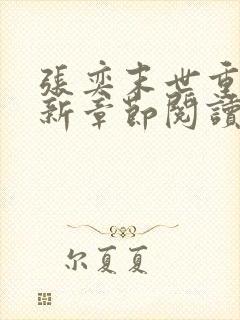 張奕末世重
新章節閱讀
尔夏夏